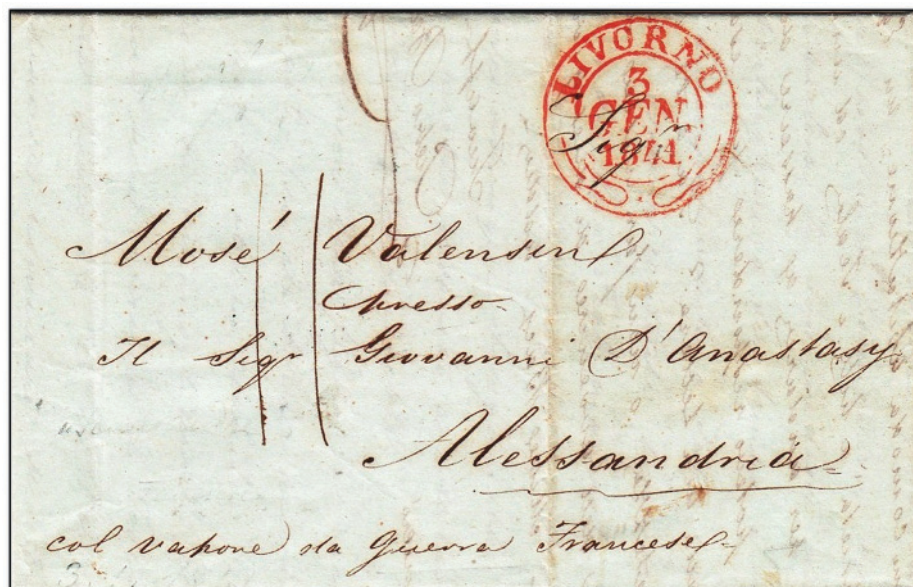 LIVORNO
3
GEN
1841
Sigr
Mosé Valensin
presso
Il Sigr Giovanni D'Anastasy
Alessandria
col vapore da guerra Francese